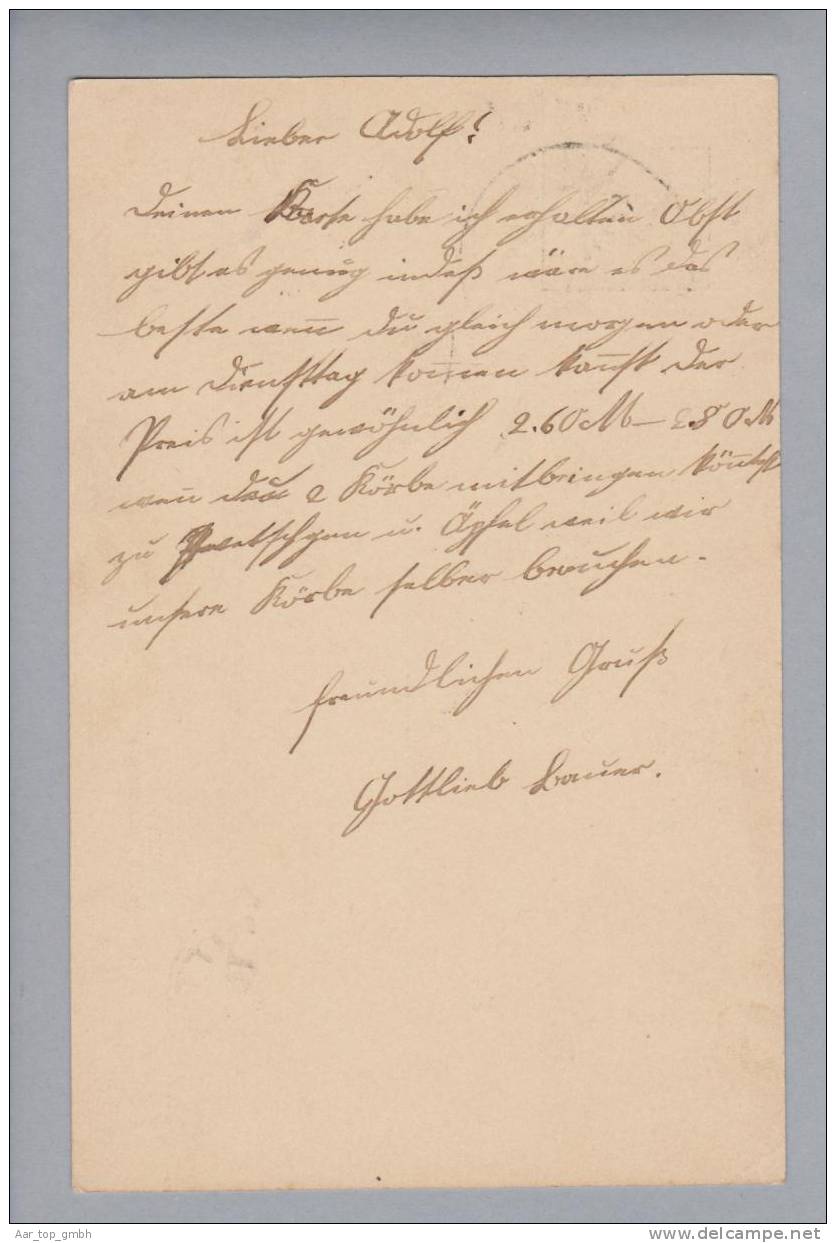 Lieber Adolf!
Deinen Karte habe ich erhalten Obst
gibt es genug indeß wäre es das
beste weñ du gleich morgen oder
am Dienstag kom̃en kañst der
Preis ist gewöhnlich 2.60 M – 2.80 M
weñ du 2 Körbe mitbringen köñtest
zu Zwetschgen u. Äpfel weil wir
unsere Körbe selber brauchen.
freundlichen Gruß
Gottlieb Bauer.
Aar_top_gmbh
www.delcampe.net